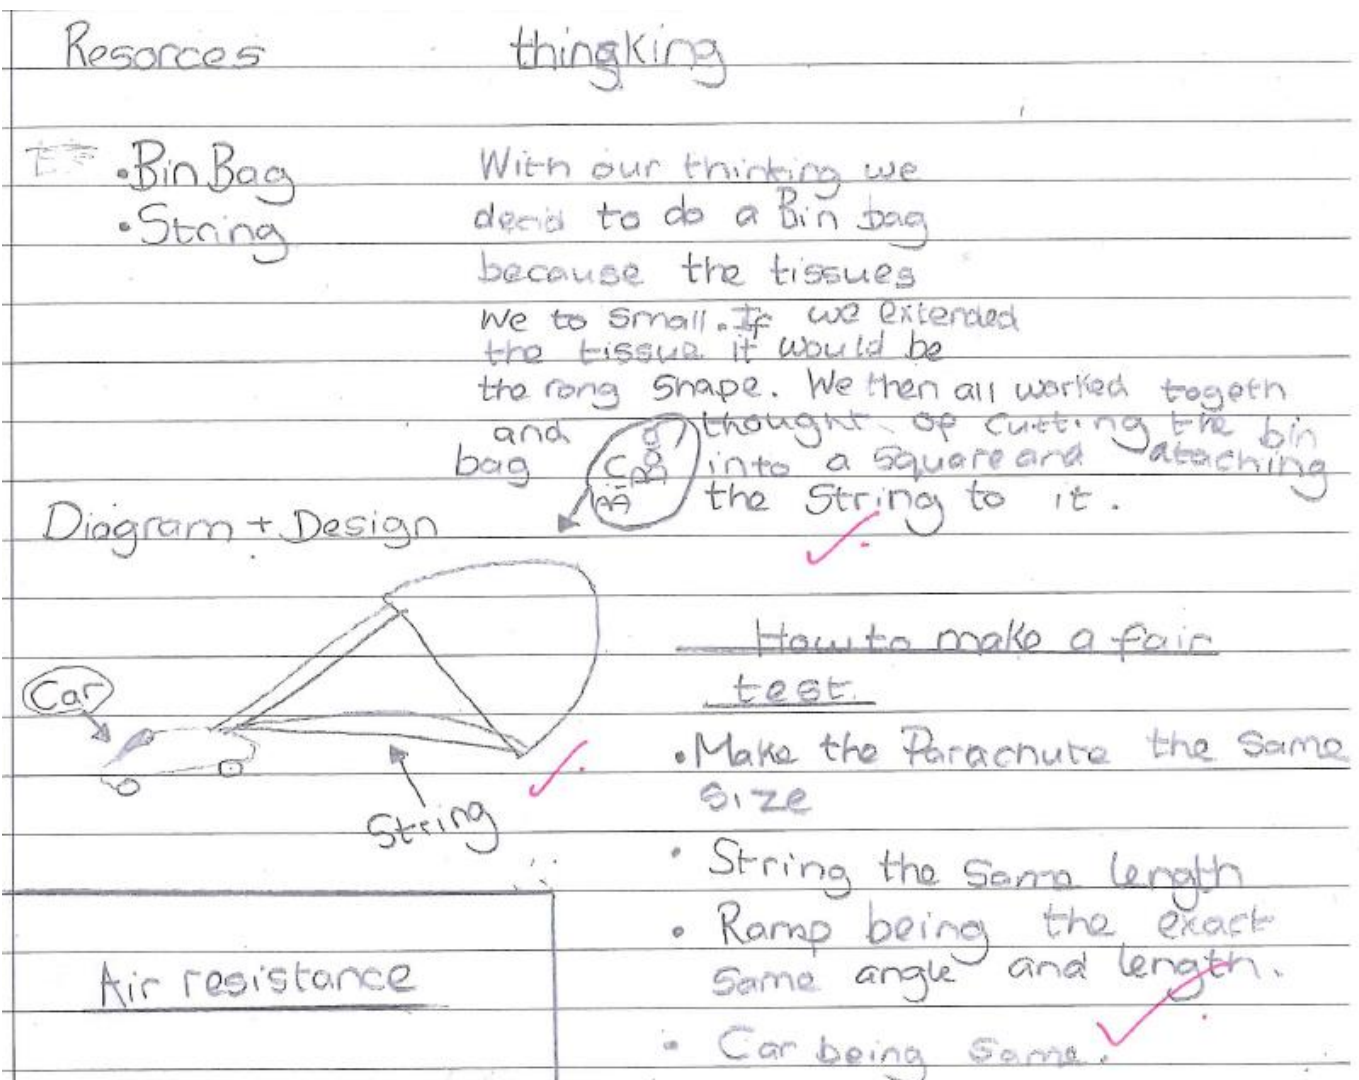 Resorces
thingking
• Bin Bag
• String
With our thinking we
decid to do a Bin bag
because the tissues
We to small. If we extended
the tissue it would be
the rong shape. We then all worked togeth
and thought of cutting the bin
bag into a square and ataching
the String to it.
Diagram + Design
Car
String
How to make a fair
test.
• Make the Parachute the same
size
• String the same length
• Ramp being the exact
same angle and length.
• Car being same.
Air resistance